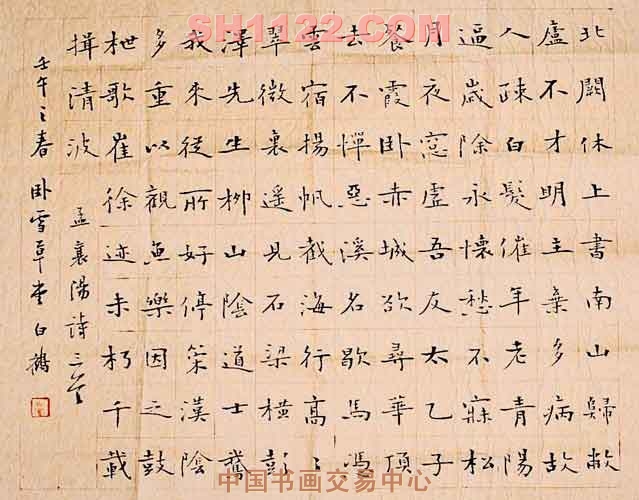 SH1122.COM
北闕休上書南山歸敝
廬不才明主棄多病故
人疎白髮催年老青陽
逼歲除永懷愁不寐松
月夜窓虛吾友太乙子
餐霞卧赤城欲尋華頂
去不憚惡溪名歇馬馮
雲宿揚帆截海行高〻
翠微裏遥見石梁橫彭
澤先生柳山陰道士鵞
我來從所好停策漢陰
多重以觀魚樂因之鼓
枻歌崔徐迹未朽千載
揖清波
孟襄陽詩三首
壬午之春卧雪草堂白鶴
中国书画交易中心